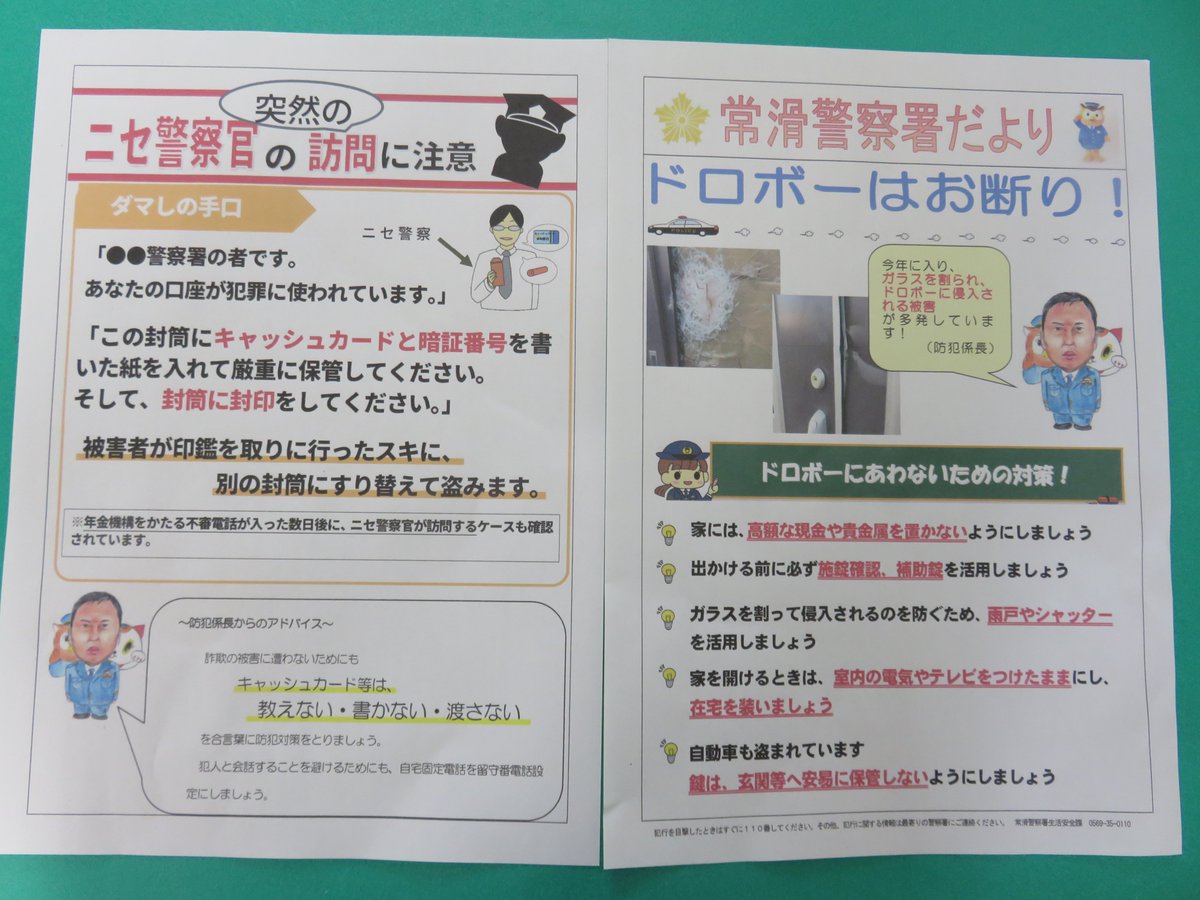 突然の
ニセ警察官の訪問に注意
ダマしの手口
ニセ警察
「●●警察署の者です。
あなたの口座が犯罪に使われています。」
「この封筒にキャッシュカードと暗証番号を書
いた紙を入れて厳重に保管してください。
そして、封筒に封印をしてください。」
被害者が印鑑を取りに行ったスキに、
別の封筒にすり替えて盗みます。
※年金機構をかたる不審電話が入った数日後に、ニセ警察官が訪問するケースも確認
されています。
～防犯係長からのアドバイス～
詐欺の被害に遭わないためにも
キャッシュカード等は、
教えない・書かない・渡さない
を合言葉に防犯対策をとりましょう。
犯人と会話することを避けるためにも、自宅固定電話を留守番電話設
定にしましょう。
常滑警察署だより
ドロボーはお断り！
今年に入り、
ガラスを割られ、
ドロボーに侵入さ
れる被害
が多発していま
す！
（防犯係長）
ドロボーにあわないための対策！
家には、高額な現金や貴金属を置かないようにしましょう
出かける前に必ず施錠確認、補助錠を活用しましょう
ガラスを割って侵入されるのを防ぐため、雨戸やシャッター
を活用しましょう
家を開けるときは、室内の電気やテレビをつけたままにし、
在宅を装いましょう
自動車も盗まれています
鍵は、玄関等へ安易に保管しないようにしましょう
犯行を目撃したときはすぐに１１０番してください。その他、犯行に関する情報は最寄りの警察署にご連絡ください。 常滑警察署生活安全課 0569-35-0110